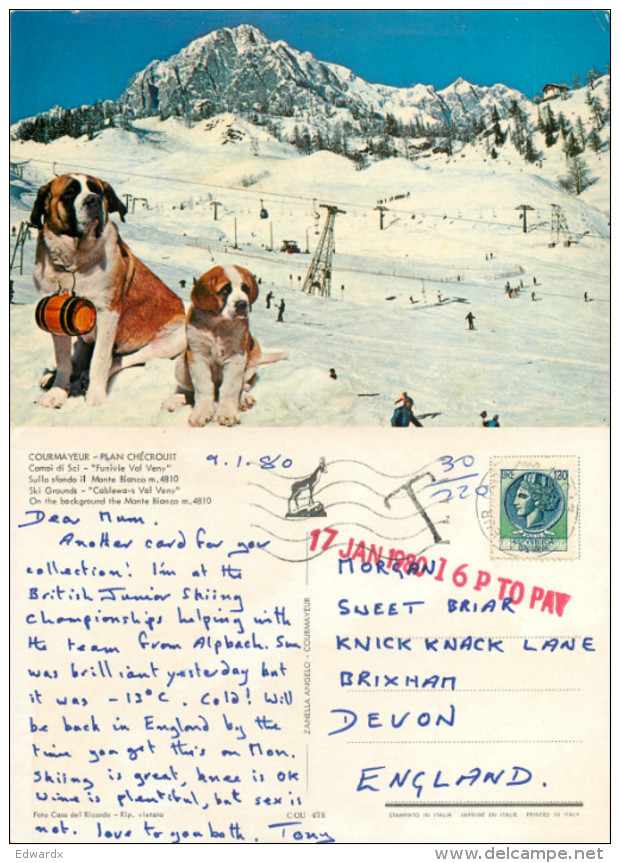 COURMAYEUR - PLAN CHÉCROUIT
Campi di Sci - "Funivie Val Veny"
Sullo sfondo il Monte Bianco m. 4810
Ski Grounds - "Cableways Val Veny"
On the background the Monte Bianco m. 4810
9.1.80
T
30
220
LIRE 120
17 JAN 1980 16P TO PAY
Dear Mum.
Another card for your
collection! I'm at the
British Junior Skiing
Championships helping with
the team from Alpbach. Sun
was brilliant yesterday but
it was -13°C. Cold! Will
be back in England by the
time you get this on Mon.
Skiing is great, knee is OK
Wine is plentiful, but sex is
not. love to you both. Tony
ZANELLA ANGELO - COURMAYEUR
MORGAN
SWEET BRIAR
KNICK KNACK LANE
BRIXHAM
DEVON
ENGLAND.
Foto Casa del Ricordo - Rip. vietata
COU 478
STAMPATO IN ITALIA IMPRIMÉ EN ITALIE PRINTED IN ITALY
Edwardx
www.delcampe.net